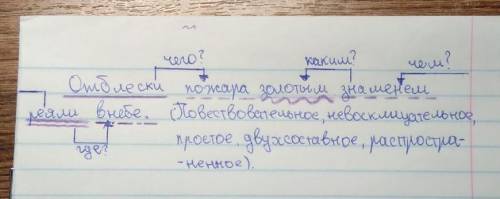 чего? каким? чем?
Отблески пожара золотым знаменем
реяли в небе. (Повествовательное, невосклицательное,
простое, двухсоставное, распростра-
где? -ненное).